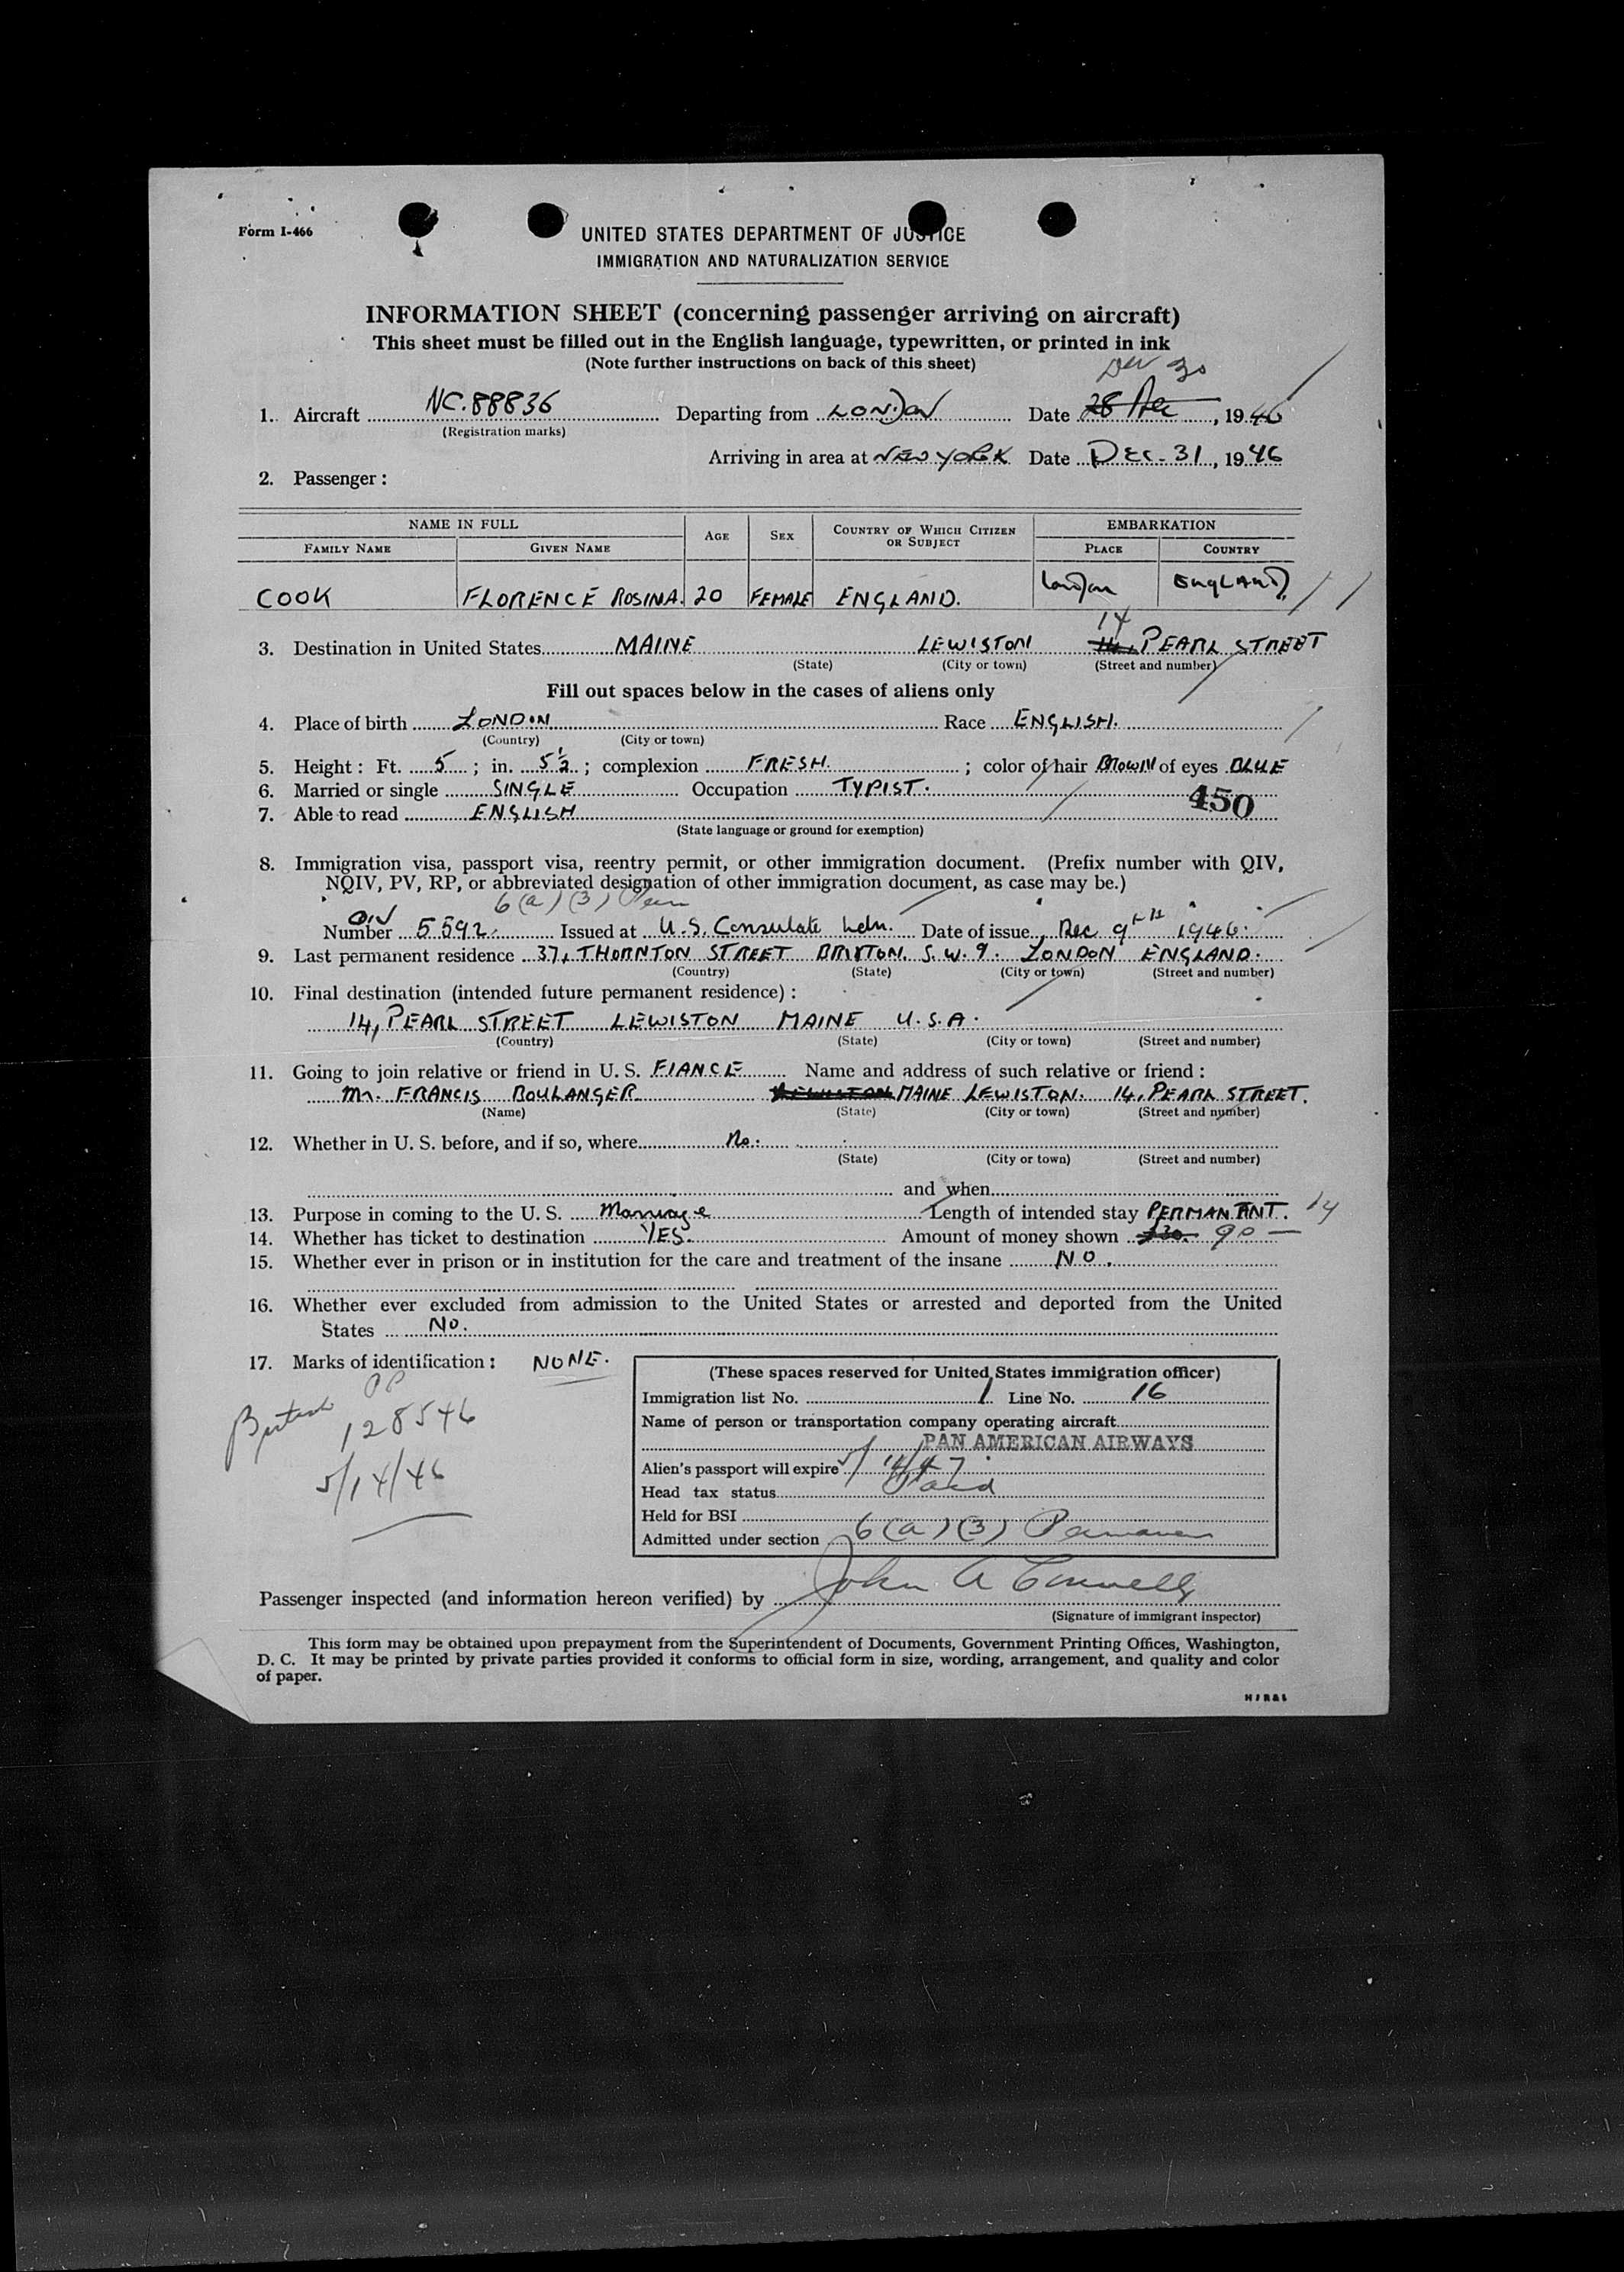 Form I-466
UNITED STATES DEPARTMENT OF JUSTICE
IMMIGRATION AND NATURALIZATION SERVICE
INFORMATION SHEET (concerning passenger arriving on aircraft)
This sheet must be filled out in the English language, typewritten, or printed in ink
(Note further instructions on back of this sheet)
Dec 30
1. Aircraft NC.88836 Departing from LONDON Date 28 Dec, 1946
(Registration marks)
Arriving in area at NEW YORK Date DEC. 31, 1946
2. Passenger:
NAME IN FULL AGE SEX COUNTRY OF WHICH CITIZEN OR SUBJECT EMBARKATION
FAMILY NAME GIVEN NAME PLACE COUNTRY
COOK FLORENCE ROSINA. 20 FEMALE ENGLAND. London ENGLAND
14
3. Destination in United States MAINE LEWISTON PEARL STREET
(State) (City or town) (Street and number)
Fill out spaces below in the cases of aliens only
4. Place of birth LONDON Race ENGLISH.
(Country) (City or town)
5. Height: Ft. 5; in. 5½; complexion FRESH.; color of hair BROWN of eyes BLUE
6. Married or single SINGLE Occupation TYPIST.
450
7. Able to read ENGLISH
(State language or ground for exemption)
8. Immigration visa, passport visa, reentry permit, or other immigration document. (Prefix number with QIV,
NQIV, PV, RP, or abbreviated designation of other immigration document, as case may be.)
6(a)(3) Perm
QIV
Number 5592. Issued at U.S. Consulate Ldn. Date of issue Dec 9th 1946.
9. Last permanent residence 37, THORNTON STREET BRIXTON. S.W.9. LONDON ENGLAND.
(Country) (State) (City or town) (Street and number)
10. Final destination (intended future permanent residence):
14, PEARL STREET LEWISTON MAINE U.S.A.
(Country) (State) (City or town) (Street and number)
11. Going to join relative or friend in U. S. FIANCE Name and address of such relative or friend:
Mr. FRANCIS BOULANGER LEWISTON MAINE LEWISTON. 14, PEARL STREET.
(Name) (State) (City or town) (Street and number)
12. Whether in U. S. before, and if so, where No.
(State) (City or town) (Street and number)
and when
13. Purpose in coming to the U. S. Marriage Length of intended stay PERMANANT.
14. Whether has ticket to destination YES. Amount of money shown $30. 90 —
15. Whether ever in prison or in institution for the care and treatment of the insane NO.
16. Whether ever excluded from admission to the United States or arrested and deported from the United
States No.
17. Marks of identification: NONE.
British PP
128546
5/14/46
(These spaces reserved for United States immigration officer)
Immigration list No. 1 Line No. 16
Name of person or transportation company operating aircraft
PAN AMERICAN AIRWAYS
Alien's passport will expire 5/14/47
Head tax status Paid
Held for BSI
Admitted under section 6(a)(3) Permanen
Passenger inspected (and information hereon verified) by John A Connelly
(Signature of immigrant inspector)
This form may be obtained upon prepayment from the Superintendent of Documents, Government Printing Offices, Washington,
D. C. It may be printed by private parties provided it conforms to official form in size, wording, arrangement, and quality and color
of paper.